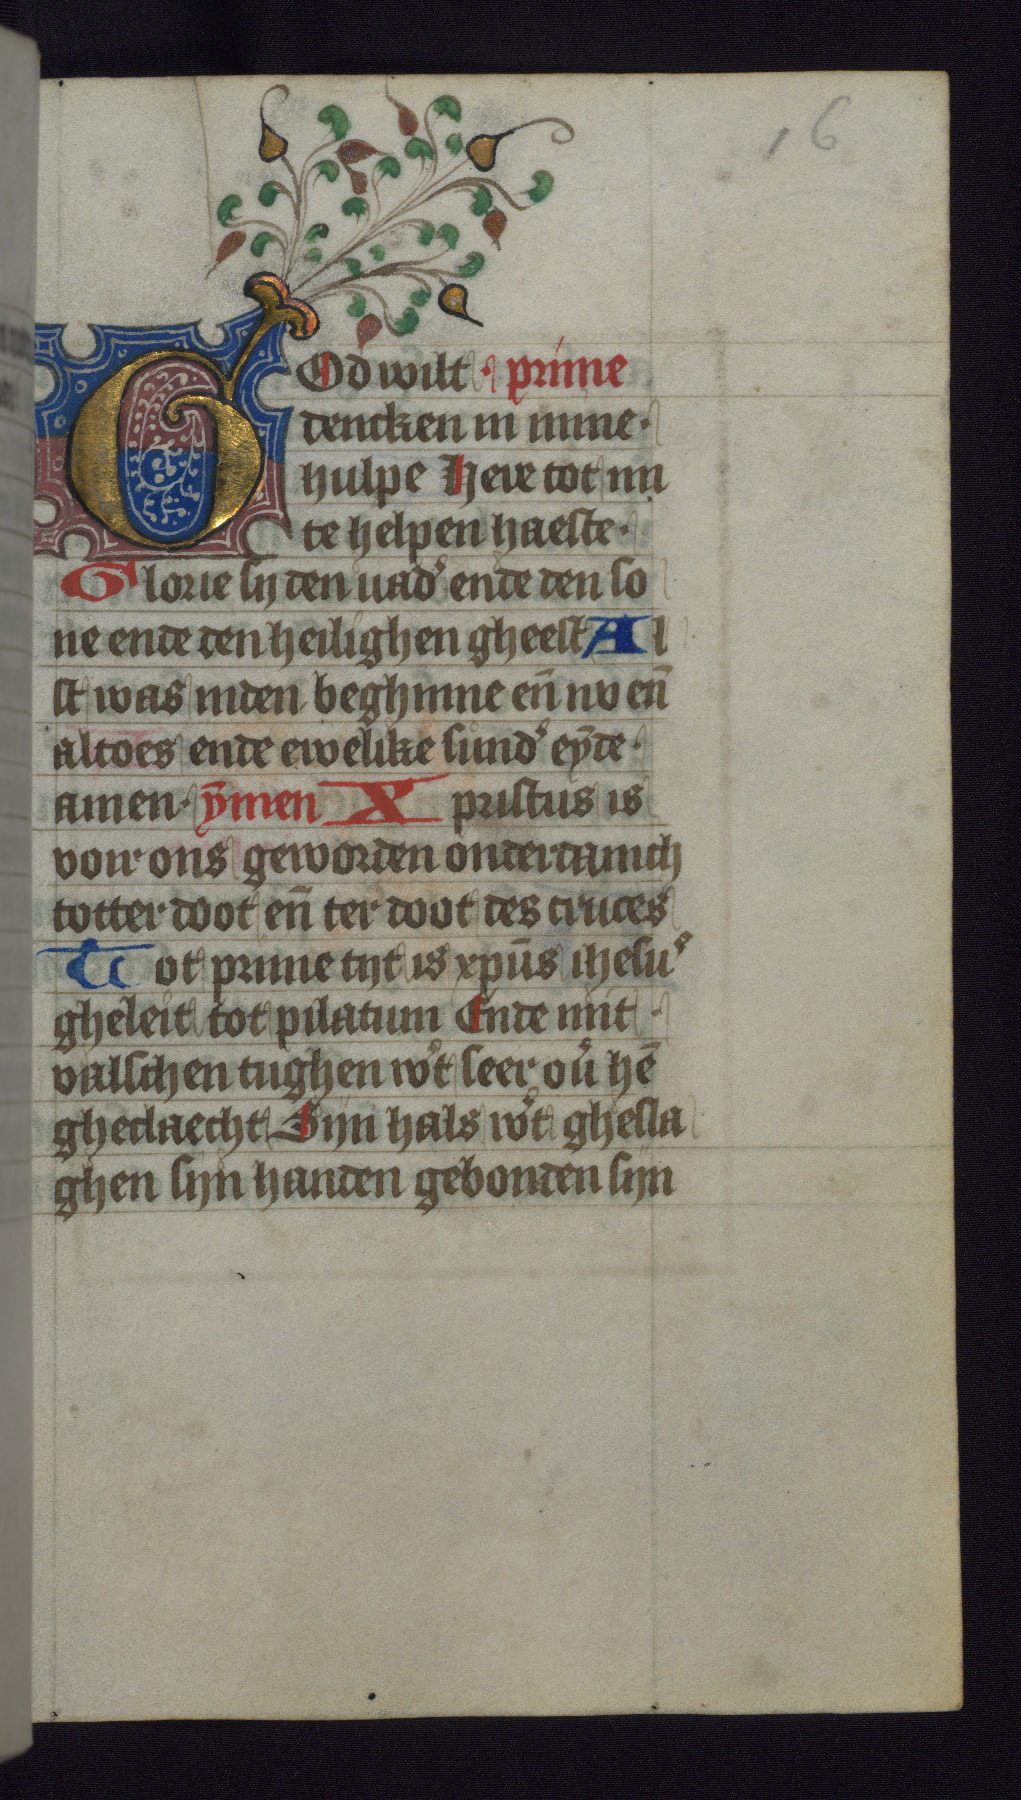 16
GOd wilt · prime
dencken in mine·
hulpe Here tot mi
te helpen haeste·
Glorie sy den vad᾽ ende den so
ne ende den heilighen gheest Al
st was inden beghinne en̄ nv en̄
altoes ende ewelike sund᾽ eȳde·
amen· ȳmen Xpristus is
voir ons geworden onderdanich
totter doot en̄ ter doot des cruces
Tot prime tijt is xpūs ihesu᾽
gheleit tot pilatum Ende mit
valschen tughen w᾽t seer ou᾽ hē
gheclaecht Sijn hals w᾽t ghesla
ghen sijn handen gebonden sijn